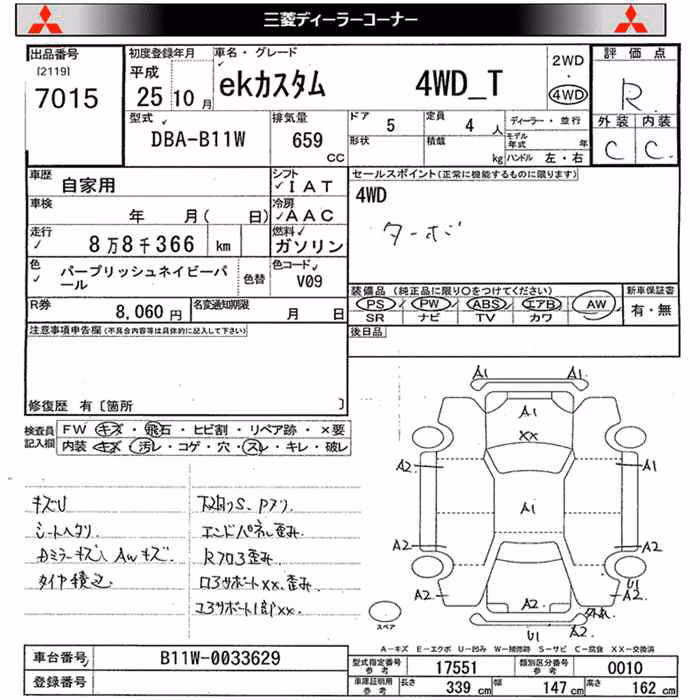 三菱ディーラーコーナー
出品番号
[2119]
7015
初度登録年月
平成
25 10 月
車名・グレード
ekカスタム 4WD_T
2WD
・
4WD
評価点
R
外装 内装
C C
型式
DBA-B11W
排気量
659
CC
ドア 5
定員 4 人
形状
積載 kg
ディーラー・並行
モデル年式 年
ハンドル 左・右
車歴 自家用
シフト
I AT
車検 年 月( 日)
冷房
AAC
走行 8万8千366 km
燃料
ガソリン
色 パープリッシュネイビーパール
色替
色コード
V09
R券 8,060 円
名変通知期限 月 日
セールスポイント(正常に機能するものに限ります)
4WD
ターボ
装備品 (純正品に限り○をつけてください)
PS PW ABS エアB AW
SR ナビ TV カワ
新車保証書
有・無
後日品
注意事項申告欄(不具合内容等は具体的に記入して下さい)
修復歴 有〔箇所 〕
検査員記入欄
FW キズ・飛石・ヒビ割・リペア跡・×要
内装 キズ・汚レ・コゲ・穴・スレ・キレ・破レ
キズU
シートヘタリ
AWキズ
タイヤ積込
エンドパネル歪み
歪み
A1 A1
A1
XX
A2 A1
A1
A2 A2
A2 A2 U1
U1 A2
スペア
A-キズ E-エクボ U-凹み W-補修跡 S-サビ C-腐食 XX-交換済
車台番号 B11W-0033629
登録番号
型式指定番号
参考
17551
類別区分番号
参考
0010
車庫証明用
参考
長さ 339 cm 幅 147 cm 高さ 162 cm